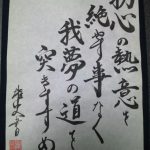 初心の熱意を
絶やす事なく
我夢の道を
突きすすめ